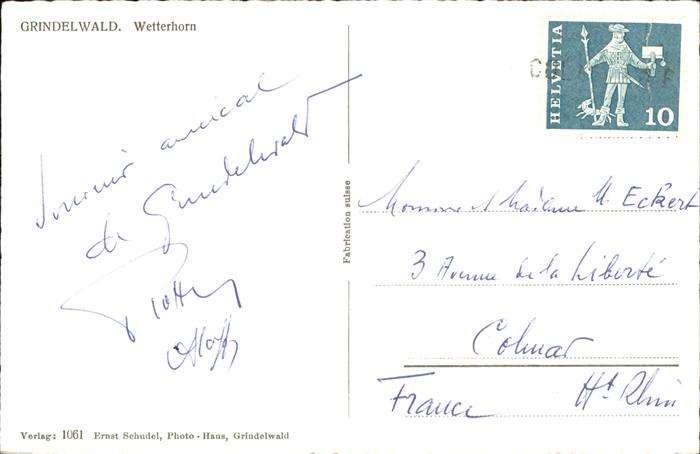 GRINDELWALD. Wetterhorn
HELVETIA
10
Souvenir amical
de Grindelwald
Fabrication suisse
Monsieur et Madame M. Eckert
3 Avenue de la Liberté
Colmar
Ht Rhin
France
Verlag: 1061 Ernst Schudel, Photo-Haus, Grindelwald